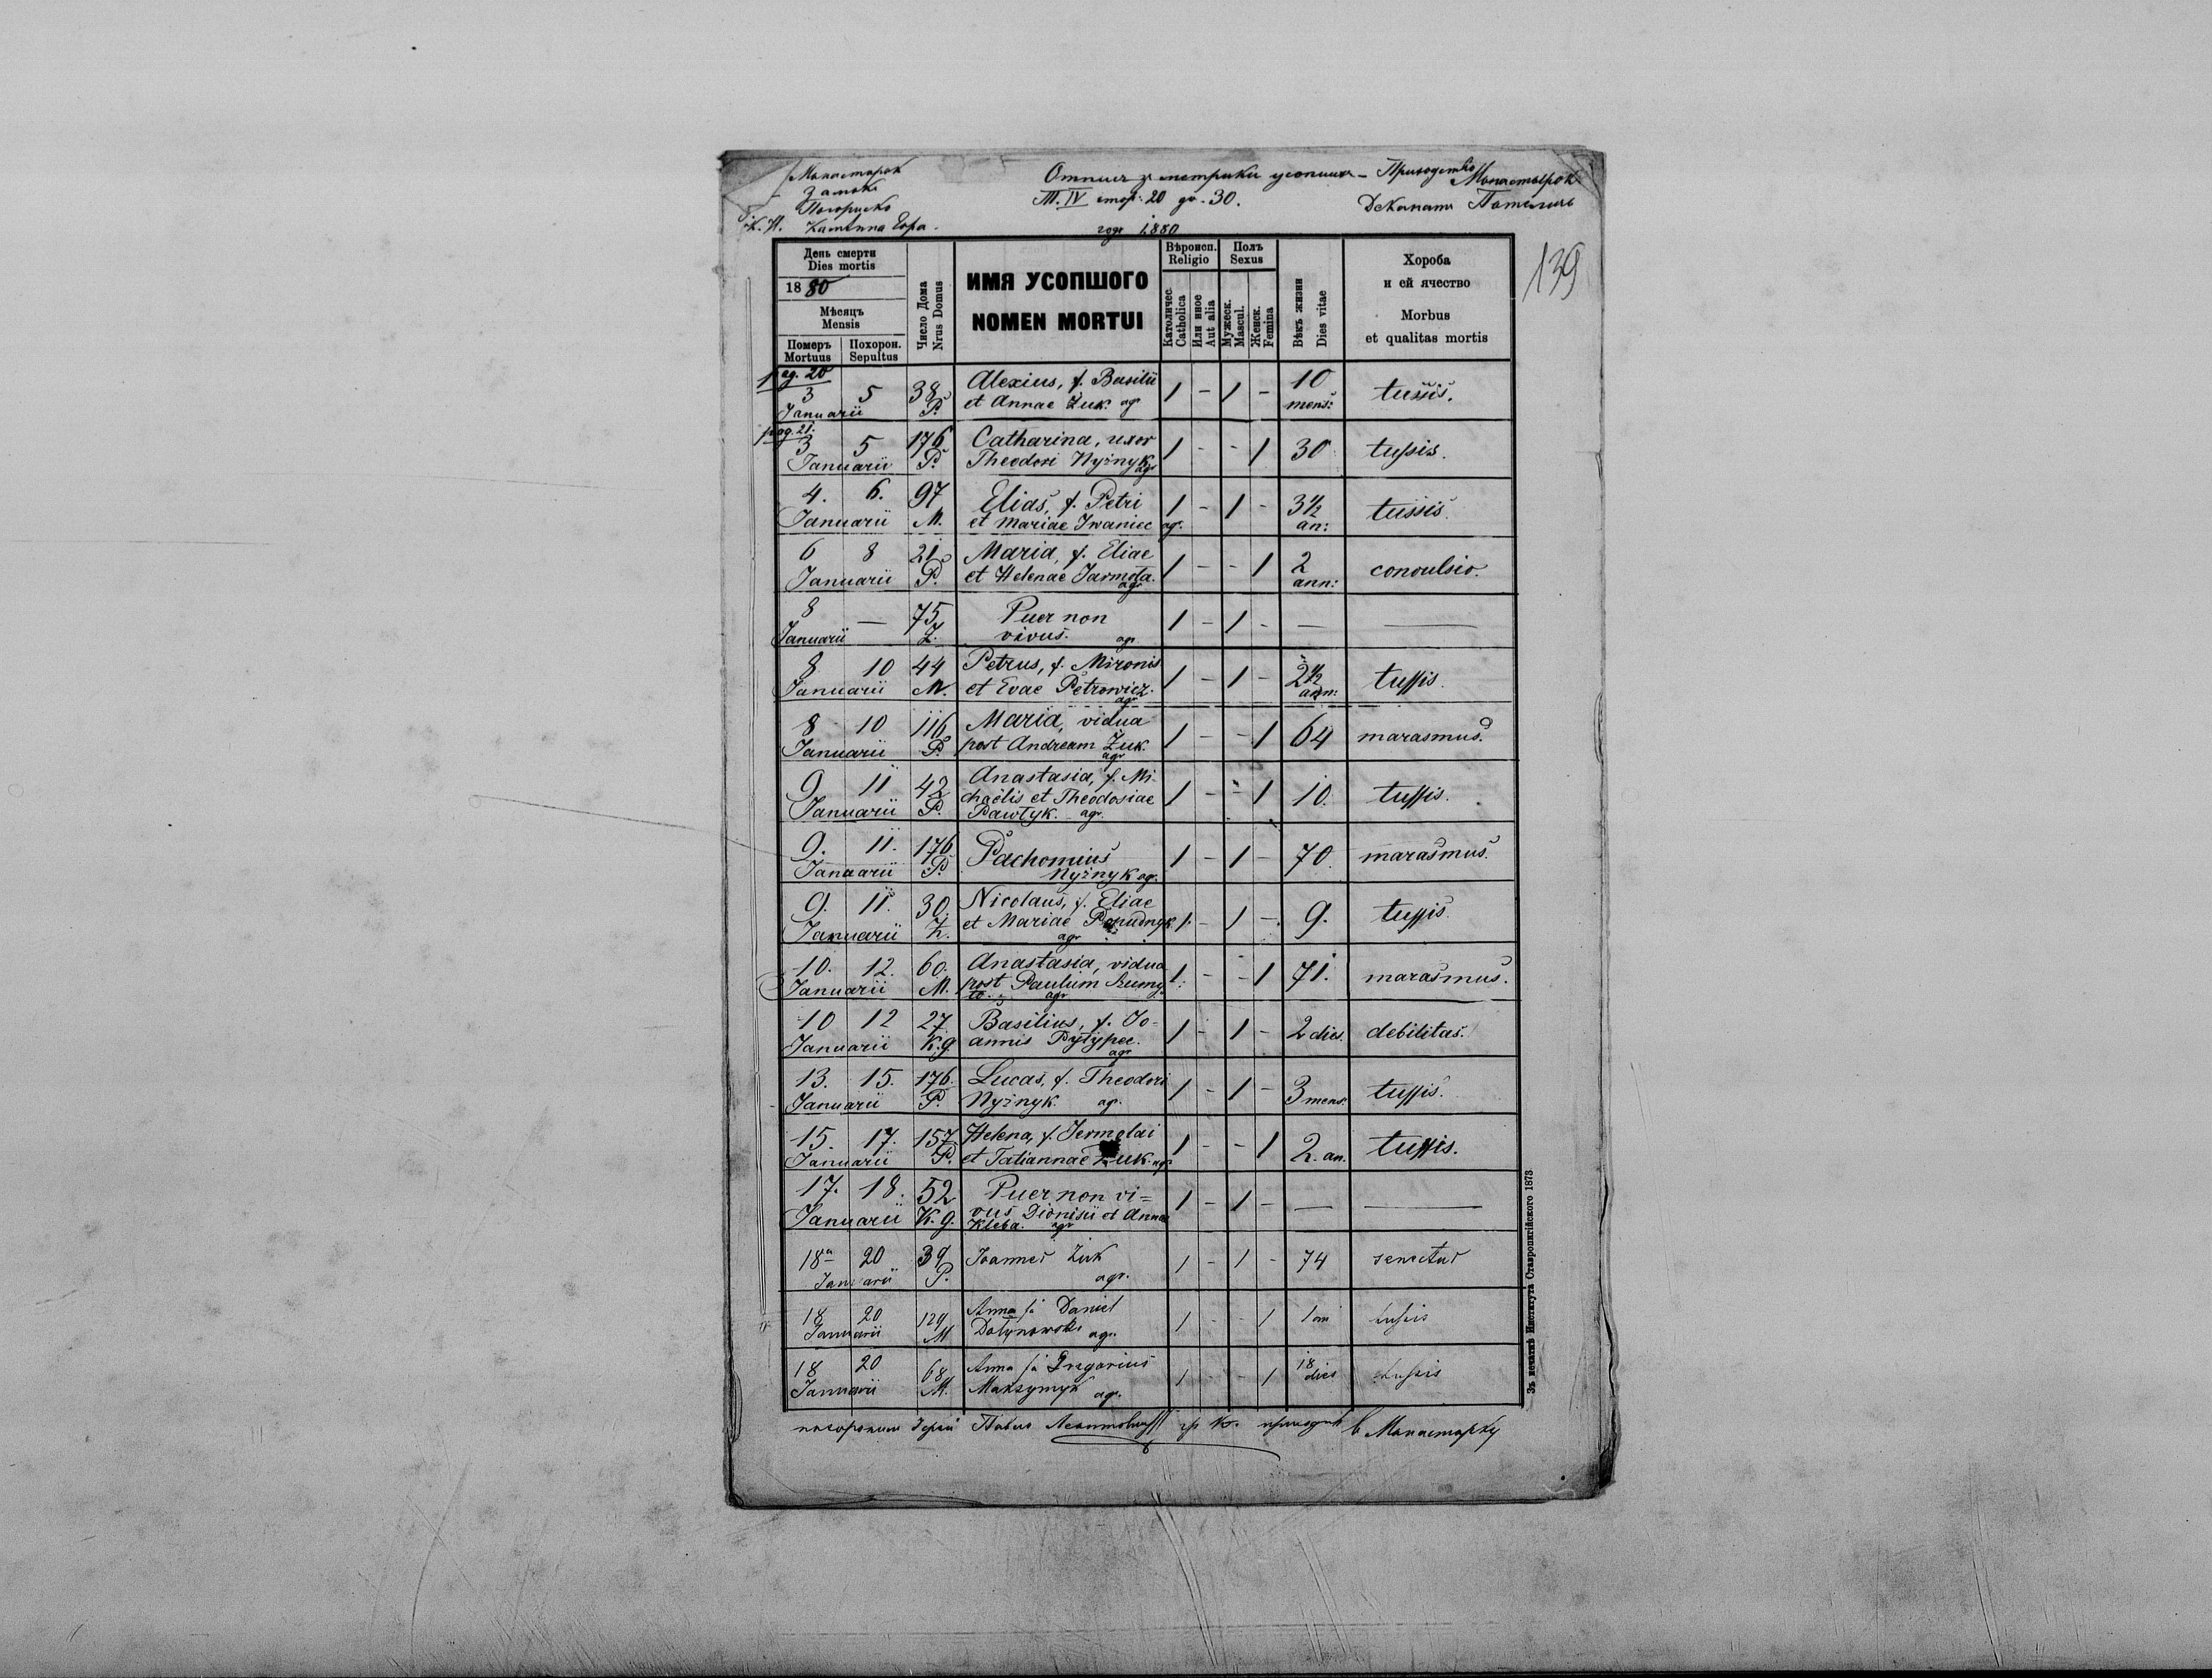 Монастырок
Замок
Погориско
К. Н. Каменна Гора.
Отпис з метрики усопших – Приходство Монастырок
Т. IV стор: 20 до. 30. Деканат Потелич
годъ 1880
139
День смерти
Dies mortis
1880
Мѣсяцъ
Mensis
Померъ
Mortuus
Похорон.
Sepultus
Число Дома
Nrus Domus
ИМЯ УСОПШОГО
NOMEN MORTUI
Вѣроисп.
Religio
Католичес
Catholica
Или иное
Aut alia
Полъ
Sexus
Мужеск.
Mascul.
Женск.
Femina
Вѣкъ жизни
Dies vitae
Хороба
и ей ячество
Morbus
et qualitas mortis
pag. 20
3 5 38 Alexius, f. Basilii 1 - 1 - 10 tussis.
Januarii P. et Annae Żuk. agr. mens:
pag. 21.
3 5 176 Catharina, uxor 1 - - 1 30 tussis.
Januarii P. Theodori Nyżnyk agr
4. 6. 97 Elias, f. Petri 1 - 1 - 3 1/2 tussis.
Januarii M. et Mariae Iwaniec agr. an:
6 8 21 Maria, f. Eliae 1 - - 1 2 convulsio.
Januarii P. et Helenae Jarmota. agr ann:
8 — 75 Puer non 1 - 1 - — —
Januarii Z. vivus. agr
8 10 44 Petrus, f. Mironis 1 - 1 - 2 1/2 tussis.
Januarii M. et Evae Petrowicz. agr ann:
8 10 116 Maria, vidua 1 - - 1 64 marasmus.
Januarii P. post Andream Żuk. agr
9 11 42 Anastasia, f. Mi- 1 - - 1 10. tussis.
Januarii P. chaëlis et Theodosiae
Pawłyk. agr.
9. 11. 176 Pachomius 1 - 1 - 70. marasmus.
Januarii P. Nyżnyk agr.
9. 11. 30. Nicolaus, f. Eliae 1. - 1 - 9. tussis.
Januarii Z. et Mariae agr
10. 12. 60. Anastasia, vidua 1 - - 1 71. marasmus.
Januarii M. post Paulum agr
10 12 27. Basilius, f. Jo- 1 - 1 - 2 dies. debilitas.
Januarii K.g. annis Pyłypec. agr
13. 15. 176. Lucas, f. Theodori 1 - 1 - 3 mens. tussis.
Januarii P. Nyżnyk. agr.
15. 17. 157 Helena, f. Jermolai 1 - - 1 2. an. tussis.
Januarii P. et Tatiannae Żuk. agr
17. 18. 52 Puer non vi= 1 - 1 - — —
Januarii K.g. vus Dionisii et Annae
Kleba. agr
18 20 39 Joannes Żuk 1 - 1 - 74 senectus
Januarii P. agr.
18 20 129 Anna fa Daniel 1 - - 1 1 an tussis
Januarii M Dołynowski agr.
18 20 68 Anna fa Gregorius 1 - - 1 18 tussis
Januarii M. Maksymyk agr. dies
похоронил Іерей Павло гр к. приходник в Монастырку
Зъ печатнѣ Института Ставропигійского 1873